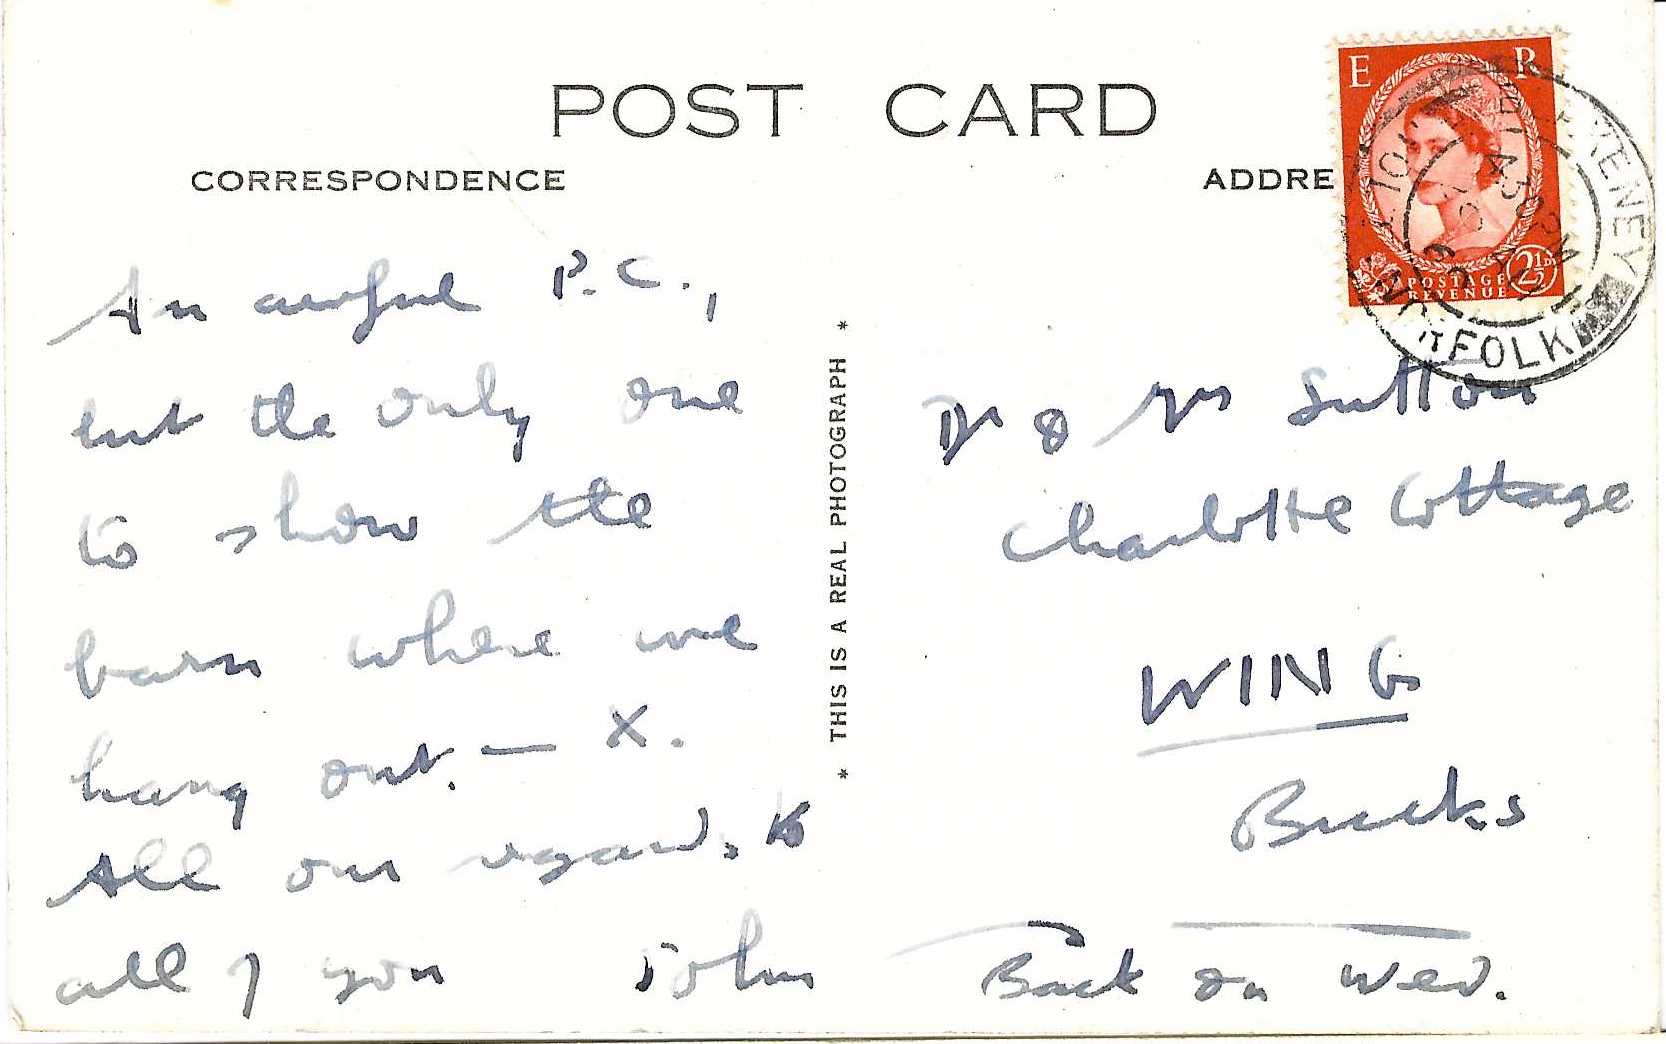 POST CARD
CORRESPONDENCE
ADDRE
E R
POSTAGE
REVENUE
2½D
BLAKENEY
HOLT
NORFOLK
4 30 PM
60
An awful P.C.,
but the only one
to show the
barn where we
hang out. — X.
All our regards to
all of you John
* THIS IS A REAL PHOTOGRAPH *
Dr & Mrs Sutton
Charlotte Cottage
WING
Bucks
Back on Wed.